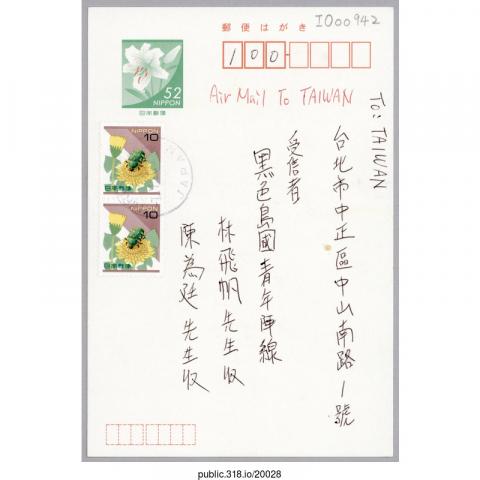 郵便はがき
I000942
100-
52
NIPPON
日本郵便
Air Mail To TAIWAN
To: TAIWAN
台北市中正區中山南路1號
受信者
黑色島國青年陣線
林飛帆先生收
陳為廷先生收
NIPPON
10
日本郵便
NIPPON
10
日本郵便
JAPAN
public.318.io/20028